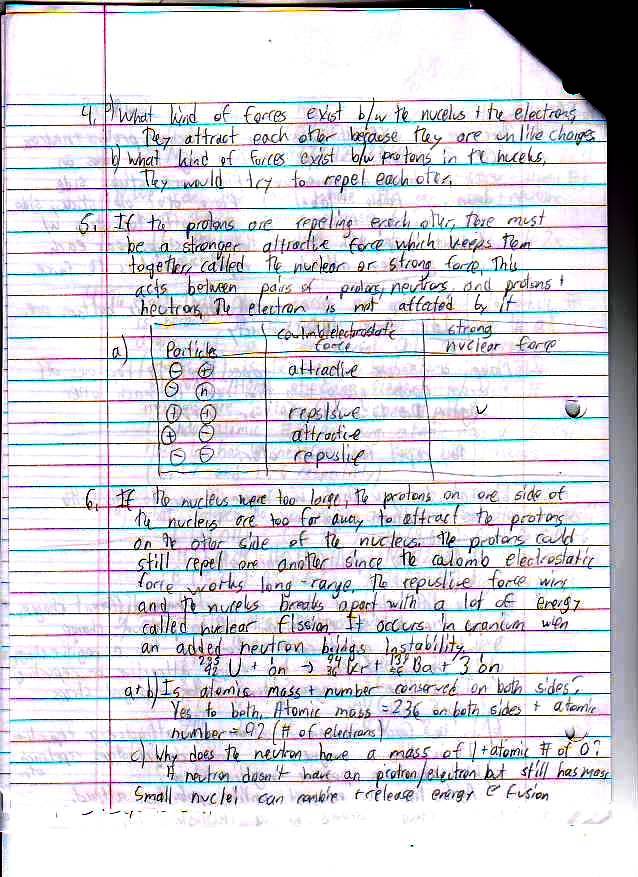 4. a) What kind of forces exist b/w the nucelus + the electrons
They attract each other because they are unlike charges
b) what kind of forces exist b/w protons in the nucelus,
They would try to repel each other.
5. If the protons are repeling each other, there must
be a stronger attractive force which keeps them
together, called the nuclear or strong force, This
acts between pairs of protons, neutrons, and protons +
neutrons, The electron is not affected by it
a) Particles coulomb electrostatic force strong nuclear force
⊖ ⊕ attractive
⊖ ⓝ
⊕ ⊕ repulsive ✓
⊕ ⊖ attractive
⊖ ⊖ repuslive
6. If the nucleus were too large, the protons on one side of
the nucleus are too far away to attract the protons
on the other side of the nucleus. The protons could
still repel one another since the coulomb electrostatic
force works long-range. The repuslive force wins
and the nucelus breaks apart with a lot of energy
called nuclear fission It occurs in uranium when
an added neutron brings instability.
²³⁵₉₂U + ¹₀n → ⁹⁴₃₆Kr + Ba + 3 ¹₀n
a+b) Is atomic mass + number conserved on both sides?
Yes to both. Atomic mass = 236 on both sides + atomic
number = 92 (# of electrons)
c) Why does the neutron have a mass of 1 + atomic # of 0?
A neutron doesn't have an protron/electron but still has mass
Small nuclei can combine + release energy @ fusion